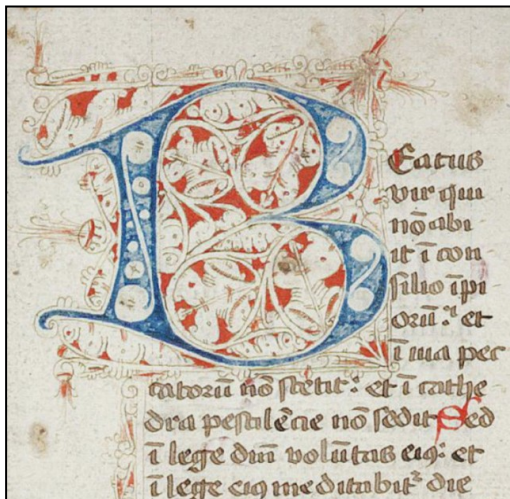 Beatus
vir qui
nō abi
it ī con
silio īpi
orū: et
ī uia pec
catorū nō stetit: et ī cathe
dra pestilēcie nō sedit Sed
ī lege dn̄i volūtas eiꝰ: et
ī lege eiꝰ meditabit᷑ die